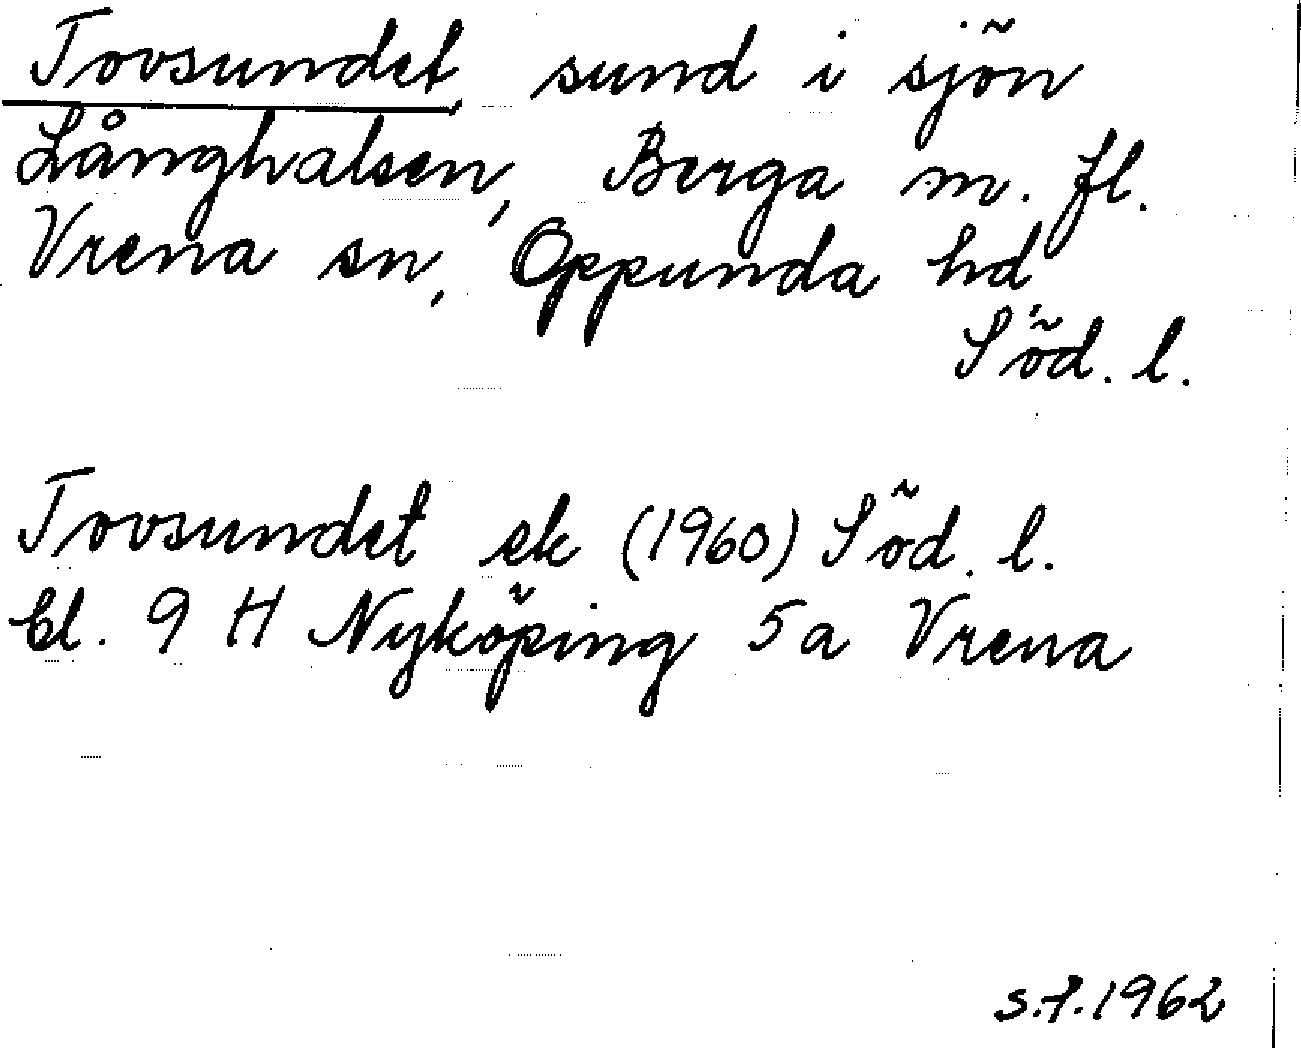 Tovsundet, sund i sjön
Långhalsen, Berga m. fl.
Vrena sn, Oppunda hd,
Söd. l.
Tovsundet ek (1960) Söd. l.
bl. 9 H Nyköping 5a Vrena
s.f. 1962